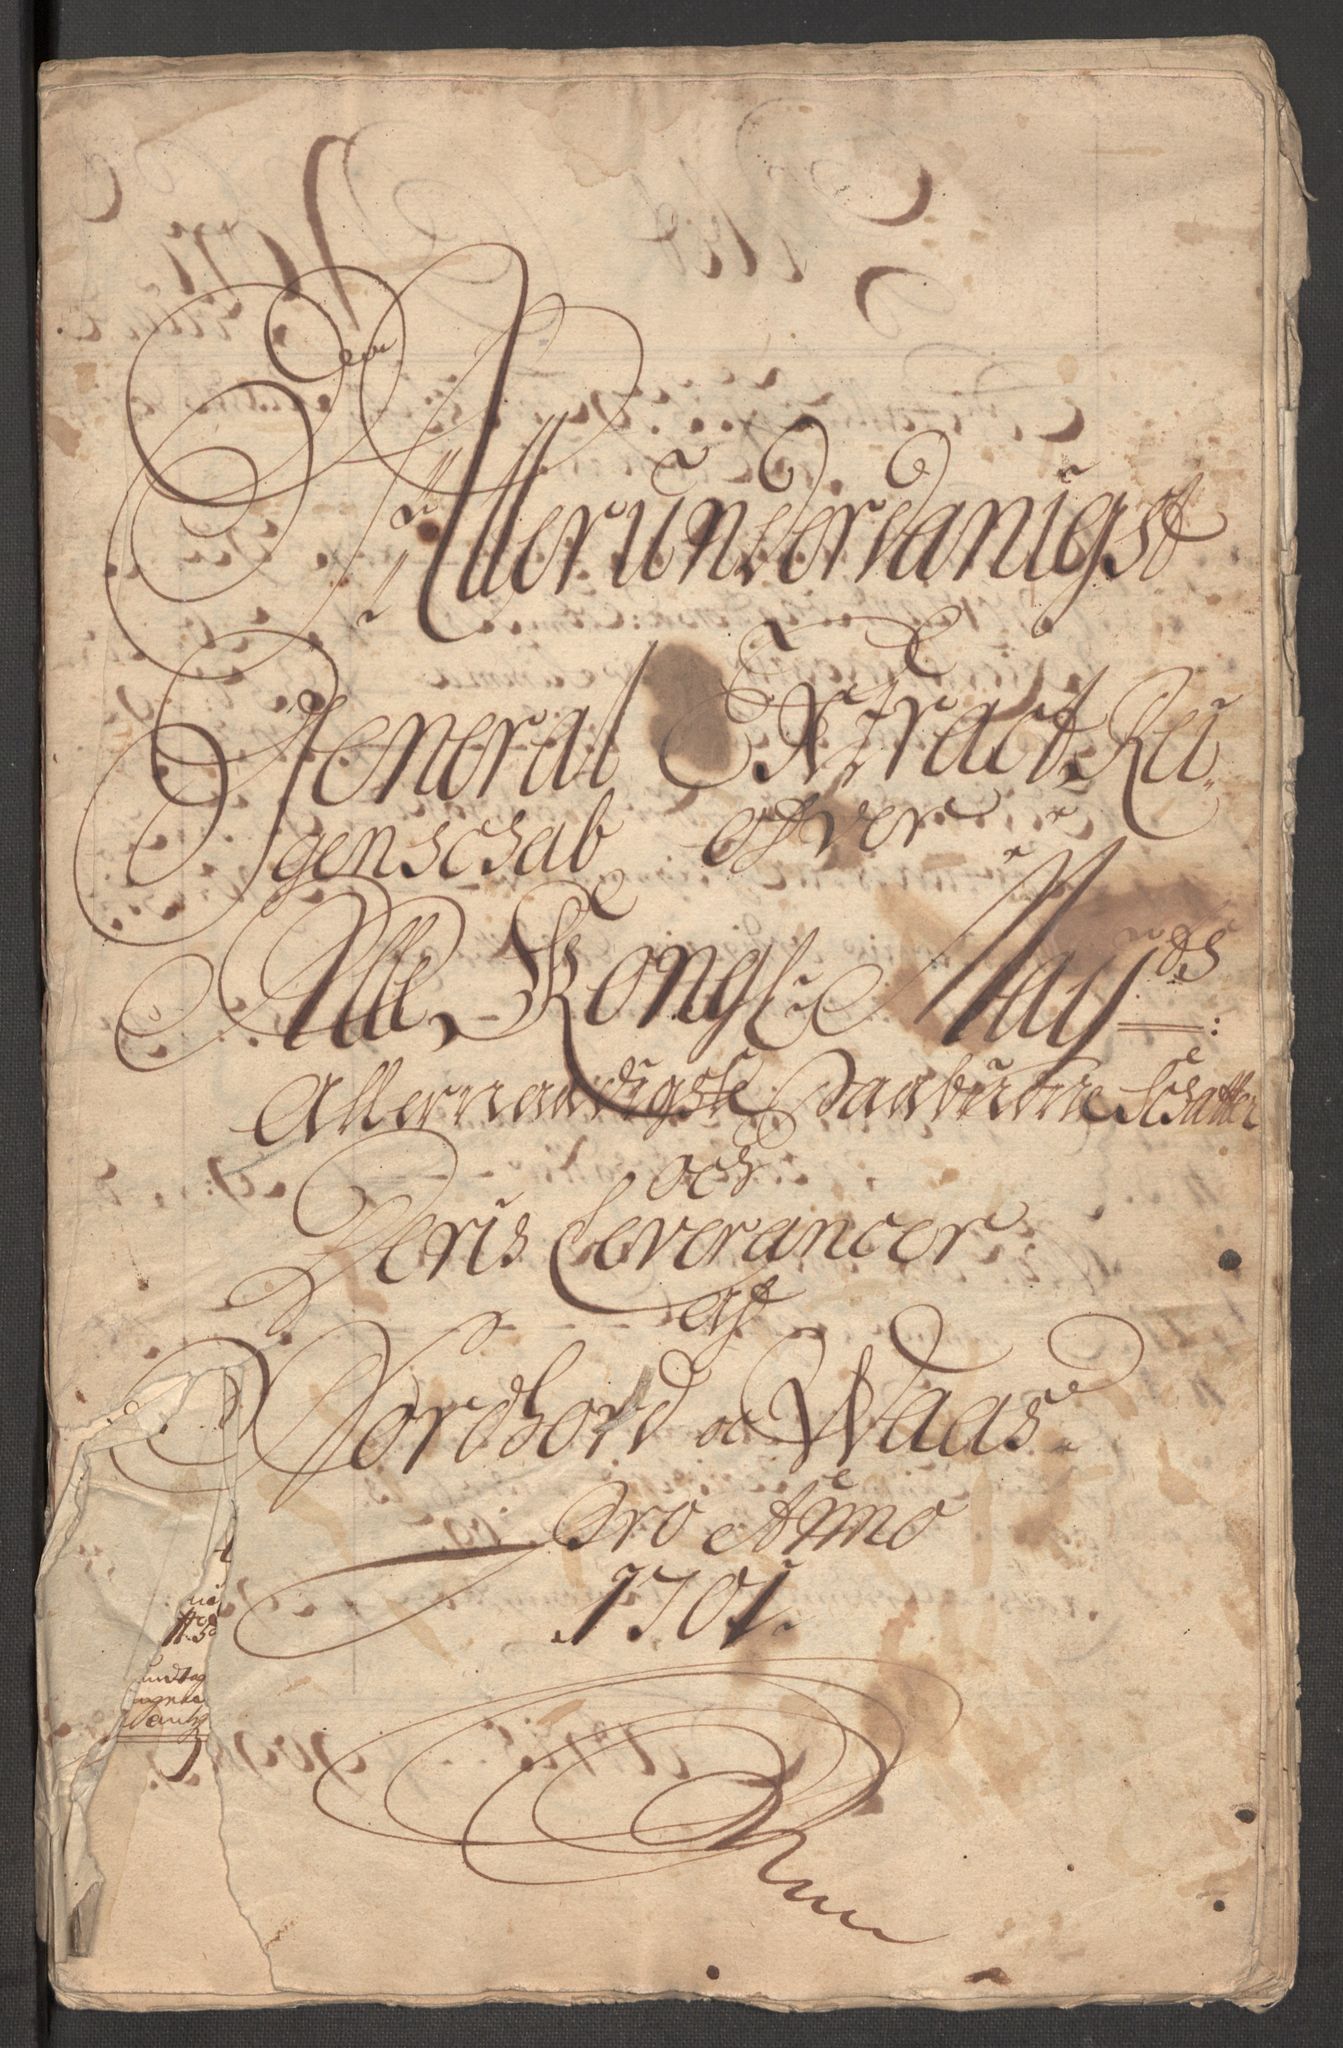 Alleründerdanigst
General Extract Rei-
genschab ofver
Alle Kongl: May ds:
Allernaadigste Paabudne Schatter
och
Deris Leverancer
af
Nordhord oc Waas
Pro Anno
1701.